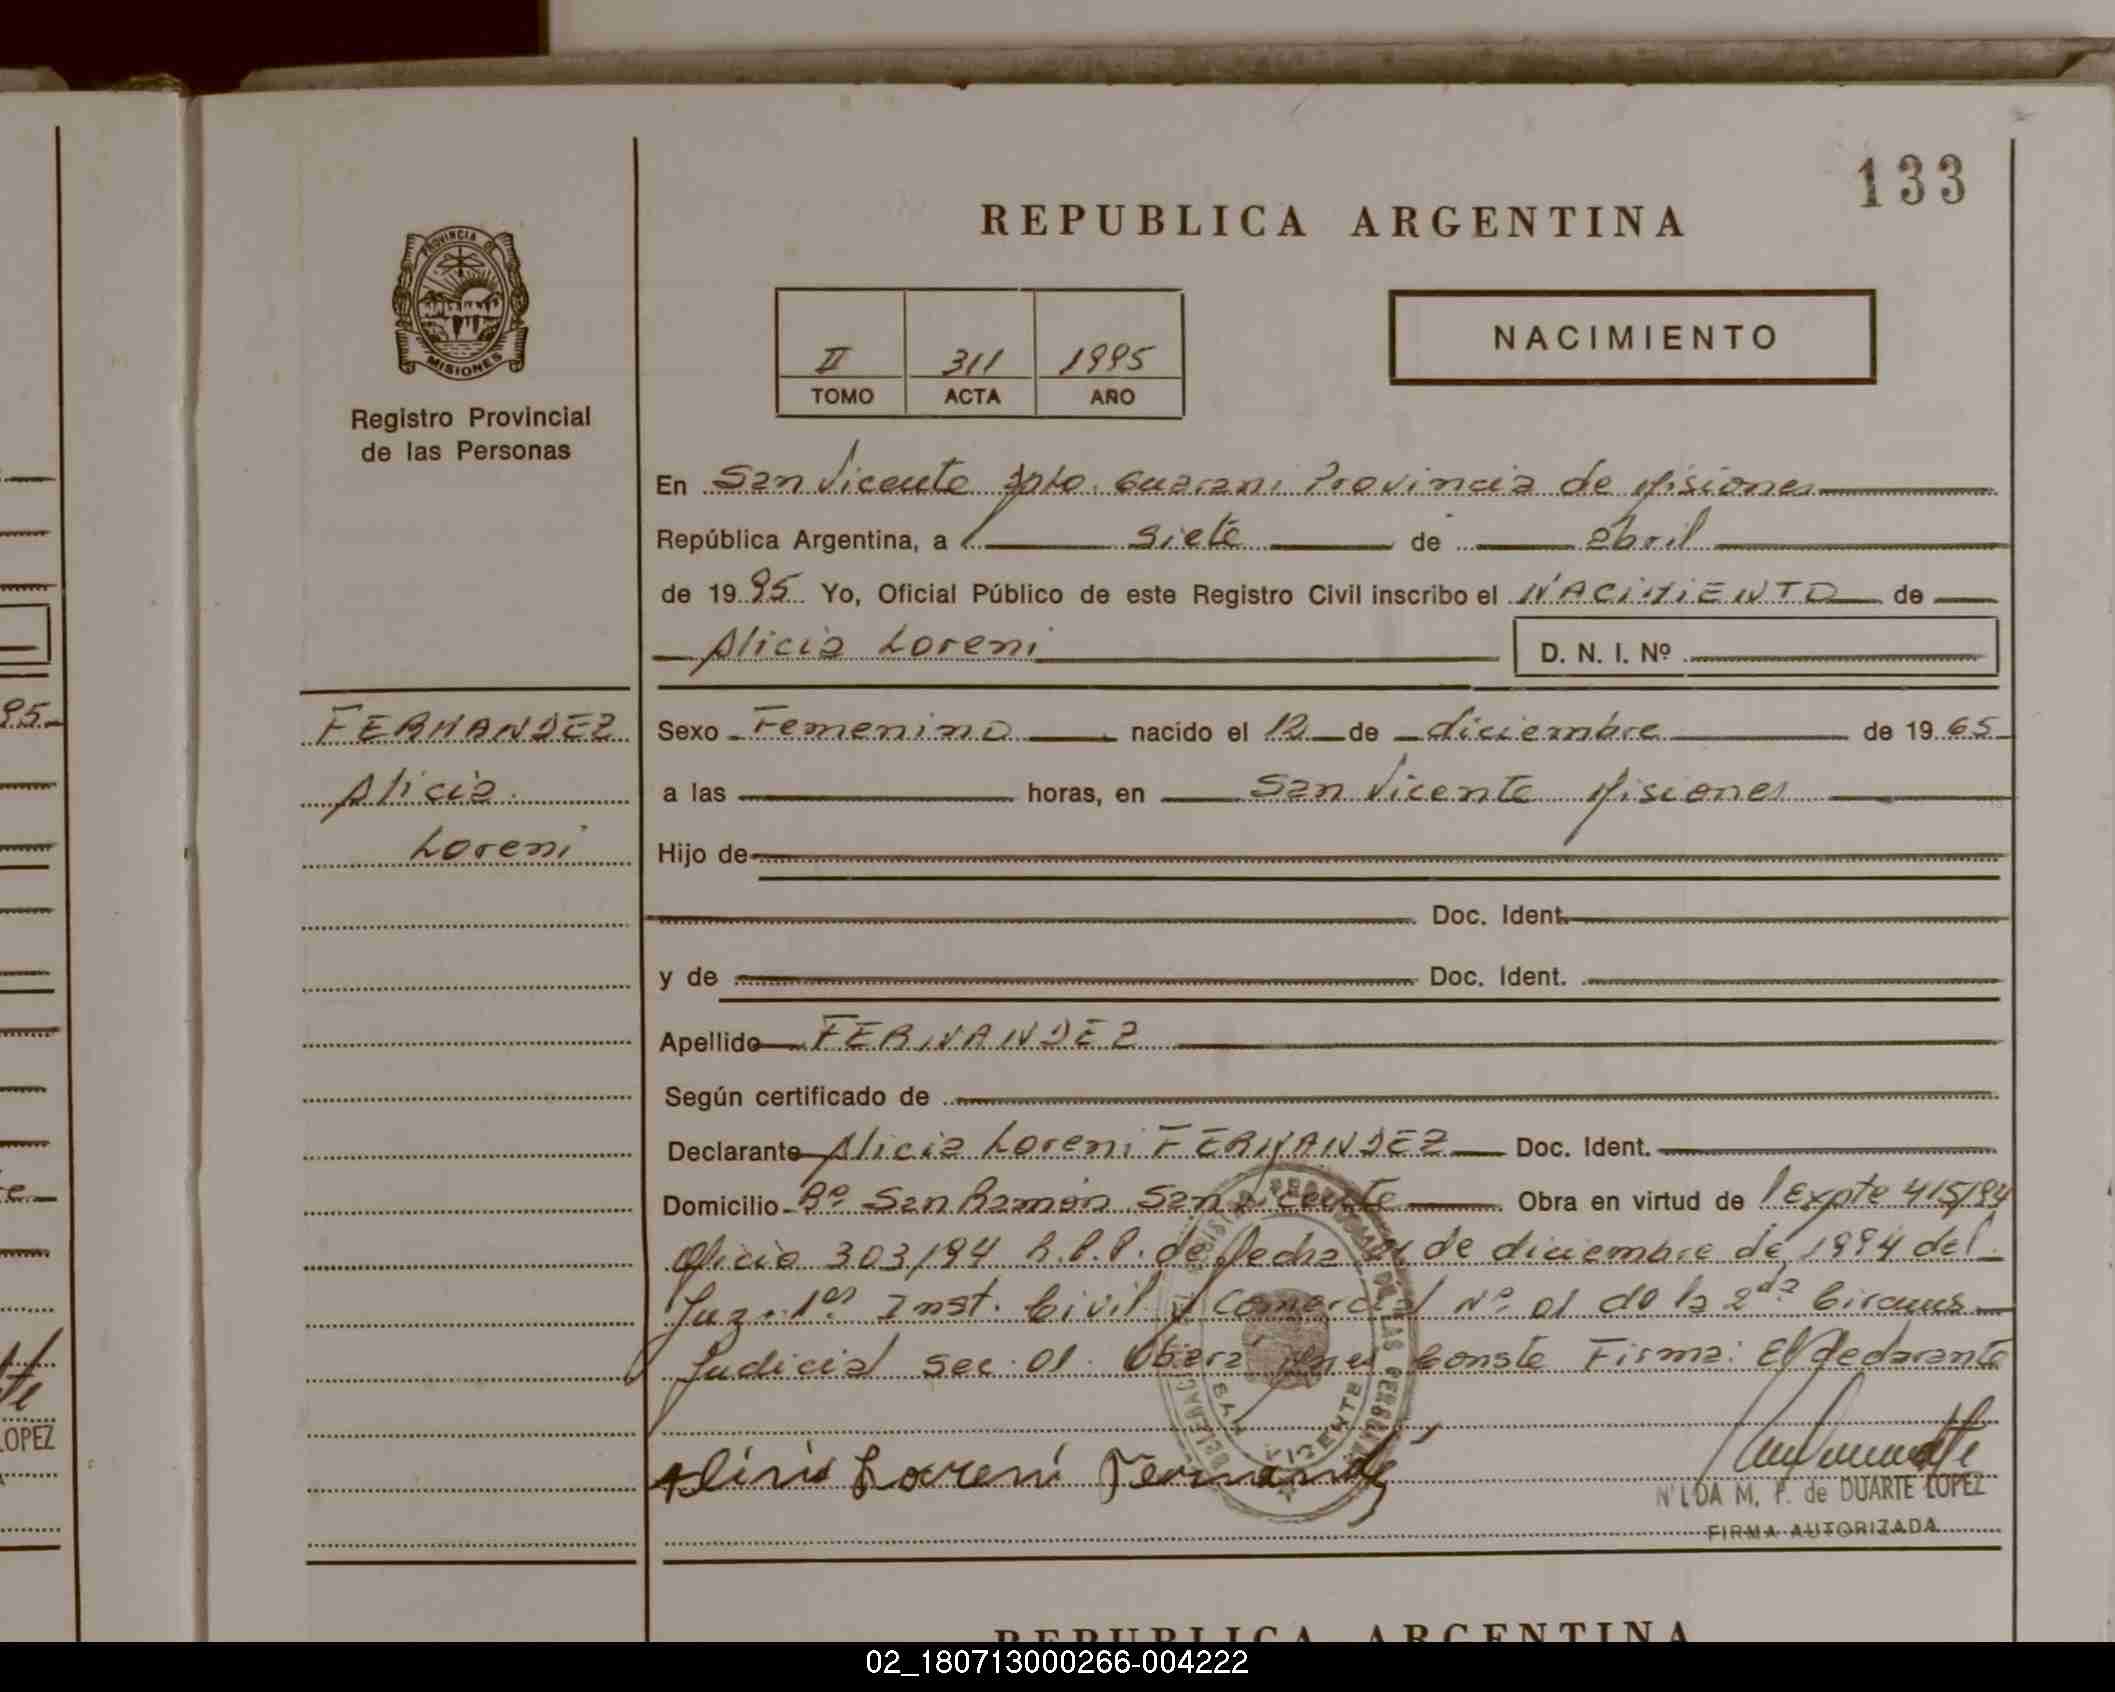 133
REPUBLICA ARGENTINA
PROVINCIA DE
MISIONES
Registro Provincial
de las Personas
II 311 1995
TOMO ACTA AÑO
NACIMIENTO
En San Vicente Dpto. Guarani Provincia de Misiones
República Argentina, a siete de abril
de 1995 Yo, Oficial Público de este Registro Civil inscribo el NACIMIENTO de
Alicia Loreni D. N. I. Nº
FERNANDEZ
Alicia
Loreni
Sexo Femenino nacido el 12 de diciembre de 1965
a las horas, en San Vicente Misiones
Hijo de
Doc. Ident.
y de Doc. Ident.
Apellido FERNANDEZ
Según certificado de
Declarante Alicia Loreni FERNANDEZ Doc. Ident.
Domicilio Bº San Ramón San Vicente Obra en virtud de Expte 415/94
Oficio 303/94 R.P.P. de fecha de diciembre de 1994 del
Juz. 1er Inst. Civil y Comercial Nº 01 de la 2da Circuns
Judicial sec. 01 Oberá Mnes Conste Firma: El declarante
Alicia Loreni Fernandez
NILDA M. P. de DUARTE LOPEZ
FIRMA AUTORIZADA
95
LOPEZ
REPUBLICA ARGENTINA
02_180713000266-004222